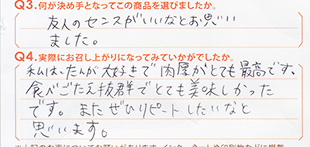 Q3.何が決め手となってこの商品を選びましたか。
友人のセンスがいいなとお思い
ました。
Q4.実際にお召し上がりになってみていかがでしたか。
私は、たんが大好きで肉厚がとても最高です、
食べごたえ抜群でとても美味しかった
です。またぜひリピートしたいなと
思います。